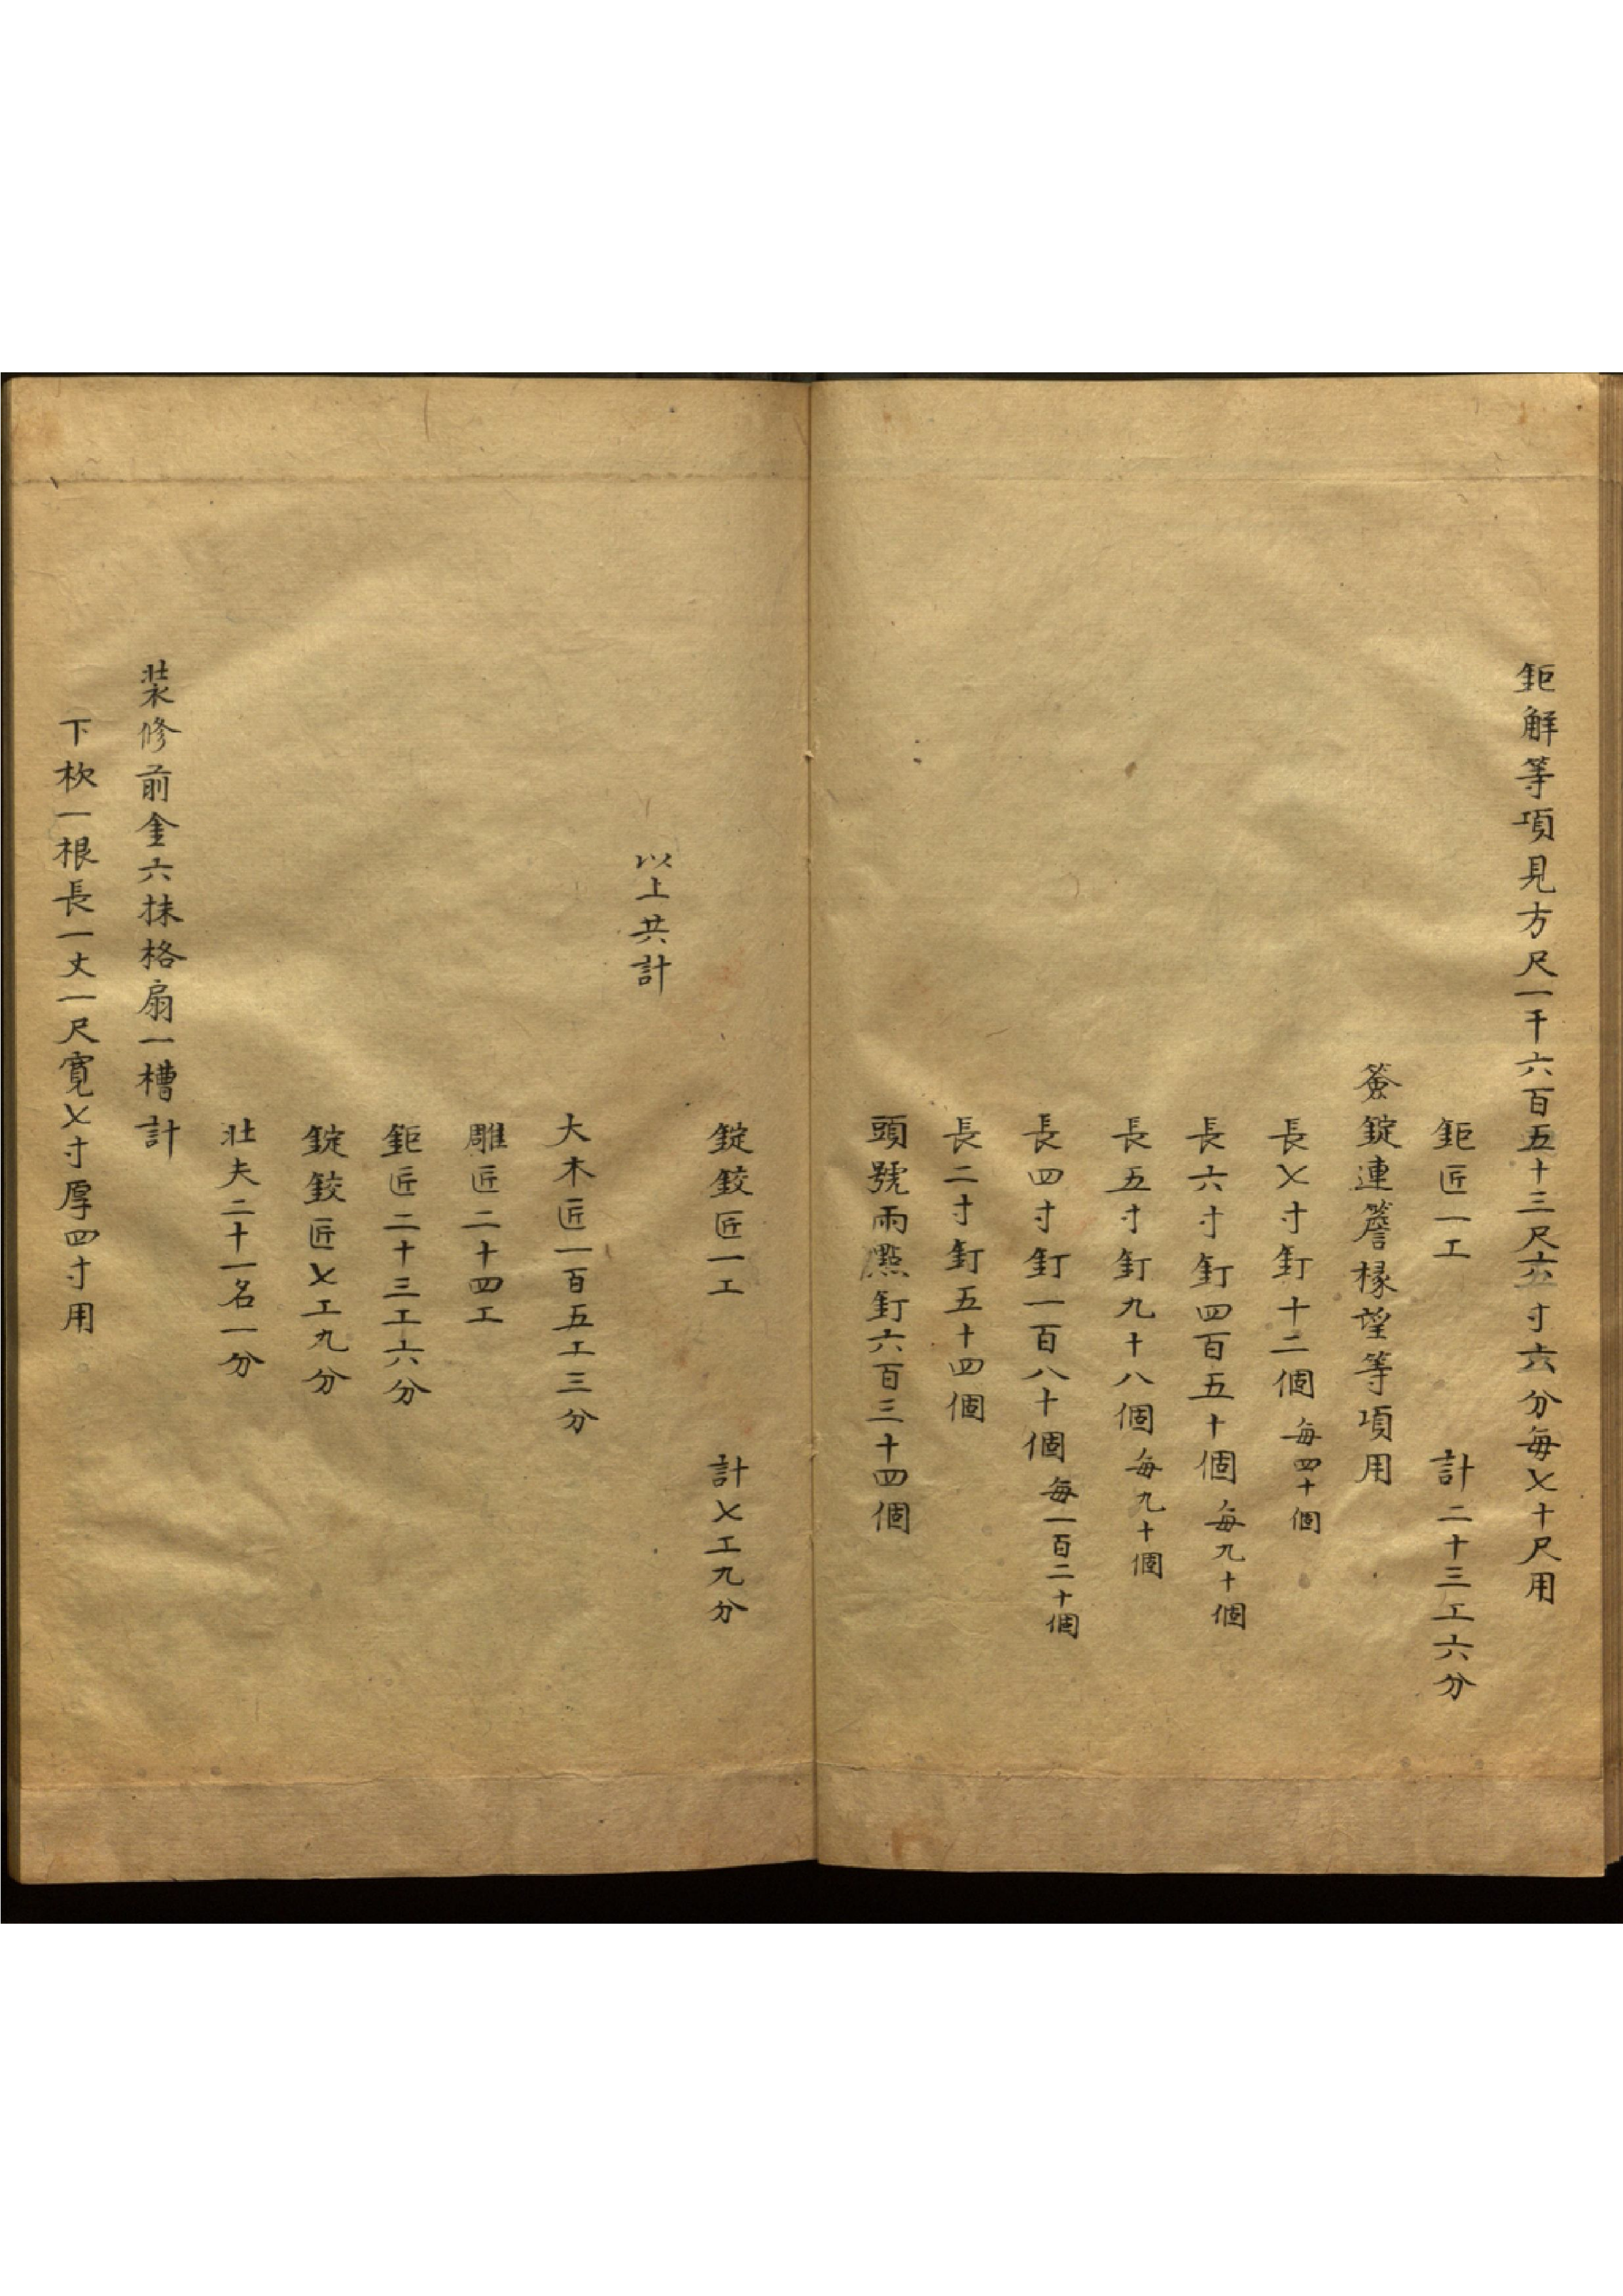 鉅解等項見方尺一千六百五十三尺六寸六分每乂十尺用
鉅匠一工　計二十三工六分
簽錠連簷椽望等項用
長乂寸釘十二個每四十個
長六寸釘四百五十個每九十個
長五寸釘九十八個每九十個
長四寸釘一百八十個每一百二十個
長二寸釘五十四個
頭號雨點釘六百三十四個
錠鉸匠一工　計乂工九分
以上共計
大木匠一百五工三分
雕匠二十四工
鉅匠二十三工六分
錠鉸匠乂工九分
壯夫二十一名一分
裝修前金六抹格扇一槽計
下枕一根長一丈一尺寬乂寸厚四寸用